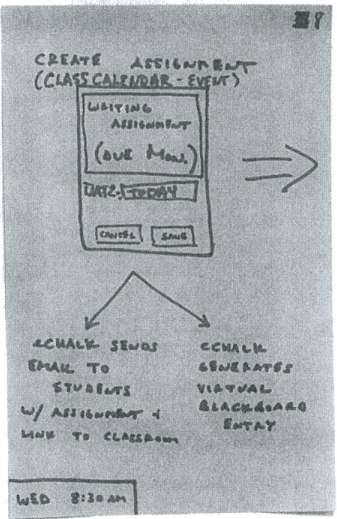 8
CREATE ASSIGNMENT
(CLASS CALENDAR - EVENT)
WRITING
ASSIGNMENT
(DUE MON.)
DATE: TODAY
CANCEL SAVE
ECHALK SENDS
EMAIL TO
STUDENTS
W/ ASSIGNMENT &
LINK TO CLASSROOM
ECHALK
GENERATES
VIRTUAL
BLACKBOARD
ENTRY
WED 8:30 AM